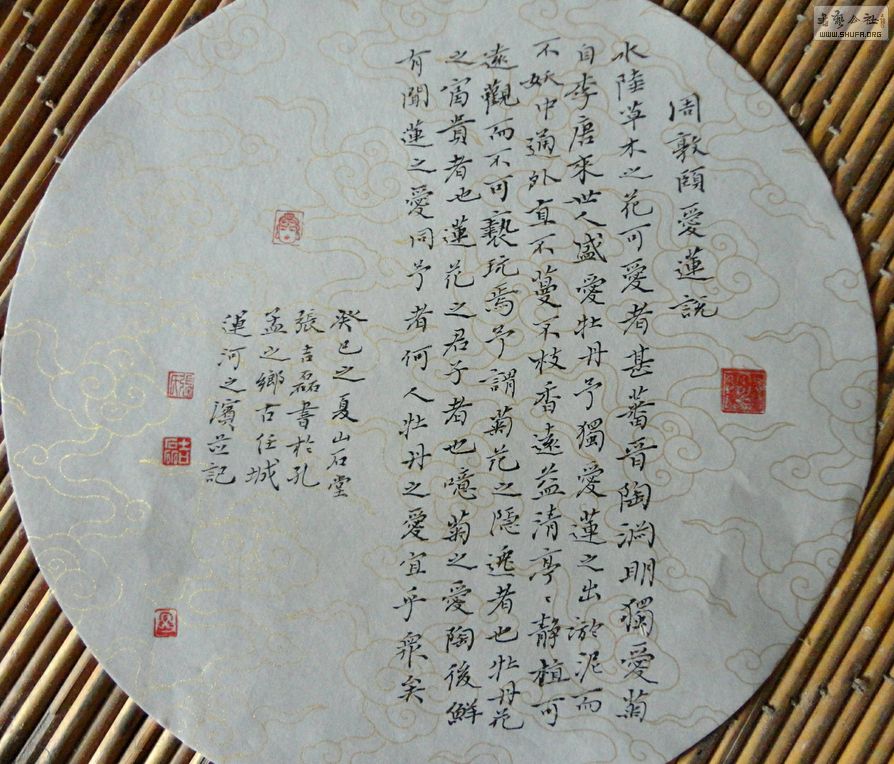 周敦頤愛蓮説
水陸草木之花可愛者甚蕃晉陶渕明獨愛菊
自李唐來世人盛愛牡丹予獨愛蓮之出淤泥而
不妖中通外直不蔓不枝香遠益清亭〻静植可
遠觀而不可褻玩焉予謂菊花之隱逸者也牡丹花
之富貴者也蓮花之君子者也噫菊之愛陶後鮮
有聞蓮之愛同予者何人牡丹之愛宜乎眾矣
癸巳之夏山石堂
張吉磊書於孔
孟之鄉古任城
運河之濱並記
張氏
吉磊
書藝公社
WWW.SHUFA.ORG